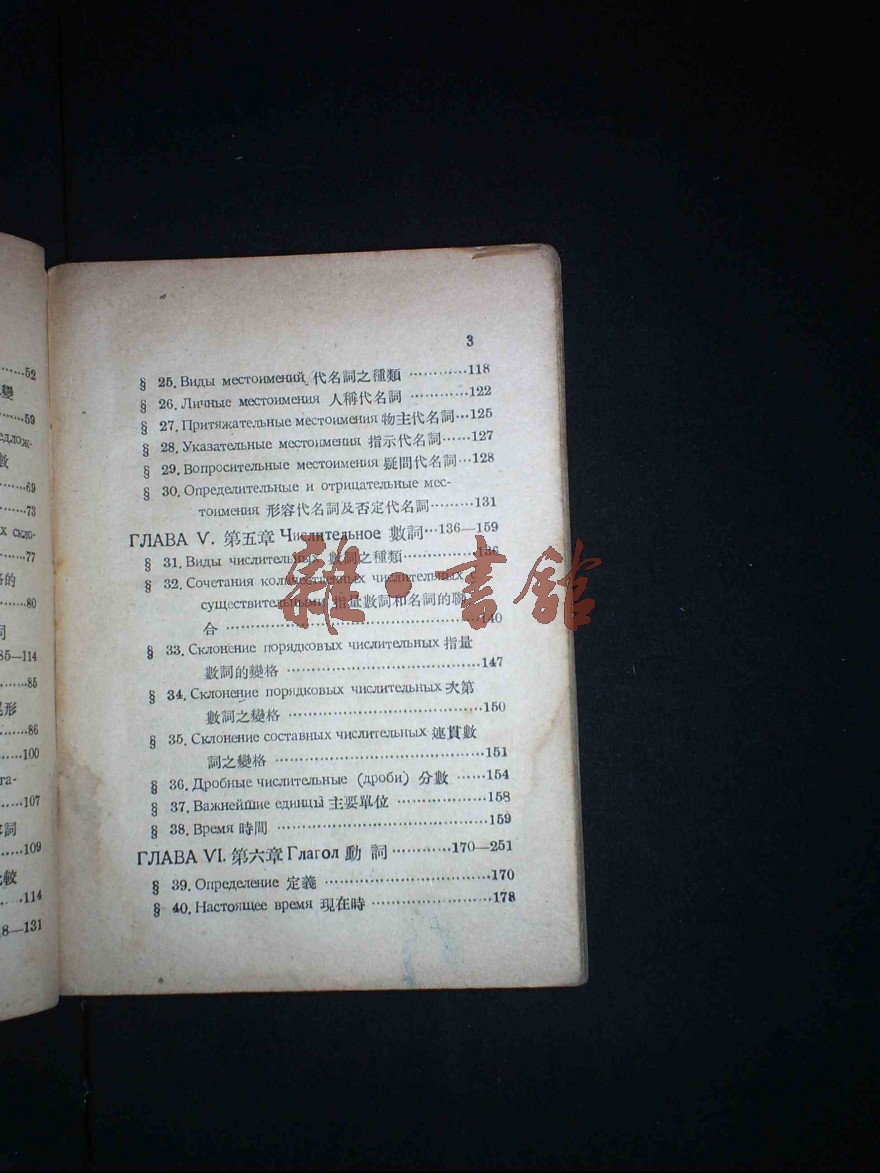 3
§ 25. Виды местоимений 代名詞之種類 …………118
§ 26. Личные местоимения 人稱代名詞 …………122
§ 27. Притяжательные местоимения 物主代名詞…125
§ 28. Указательные местоимения 指示代名詞……127
§ 29. Вопросительные местоимения 疑問代名詞…128
§ 30. Определительные и отрицательные мес-
тоимения 形容代名詞及否定代名詞………131
ГЛАВА V. 第五章 Числительное 數詞…136—159
§ 31. Виды числительных 數詞之種類…………136
§ 32. Сочетания количественных числительных с
существительными 指量數詞和名詞的聯
合 ……………………………140
§ 33. Склонение порядковых числительных 指量
數詞的變格 ………………………147
§ 34. Склонение порядковых числительных 次第
數詞之變格 ………………………150
§ 35. Склонение составных числительных 連貫數
詞之變格 …………………………151
§ 36. Дробные числительные (дроби) 分數 ……154
§ 37. Важнейшие единцы 主要單位 ……………158
§ 38. Время 時間 ……………………………159
ГЛАВА VI. 第六章 Глагол 動 詞 …………170—251
§ 39. Определение 定義 ………………………170
§ 40. Настоящее время 現在時 ………………178
……52
變
……59
едлож-
數
……69
……73
х скло-
……77
格的
……80
詞
85—114
……85
尾形
……86
……100
га-
……107
容詞
……109
比較
……114
18—131
雜·書館